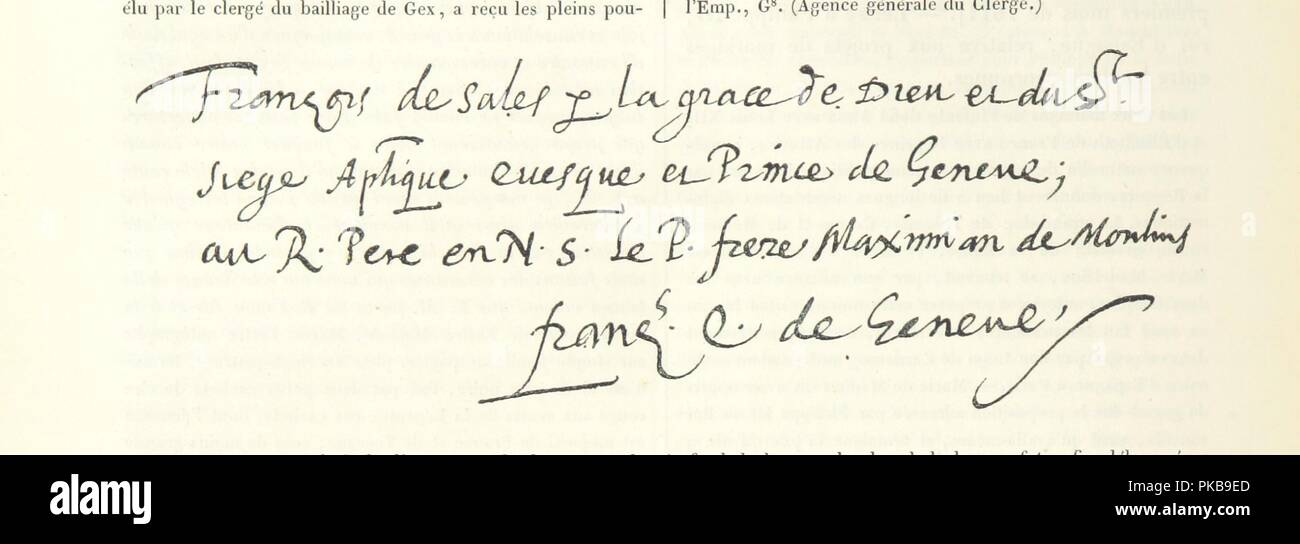 élu par le clergé du bailliage de Gex, a reçu les pleins pou-
l'Emp., Gs. (Agence générale du Clergé.)
Françoys de Sales p. la grace de Dieu et du St.
siege Aplique euesque et Prince de Geneue,
au R. Pere en N. S. le P. frere Maximian de Moulins
françs e. de Geneue,
alamy
Image ID: PKB9ED
www.alamy.com